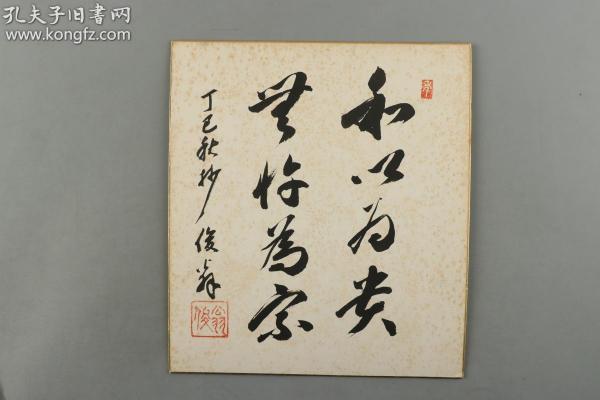 孔夫子旧书网
www.kongfz.com
和以为贵
無忤為宗
丁巳秋抄 俊翁
俊翁